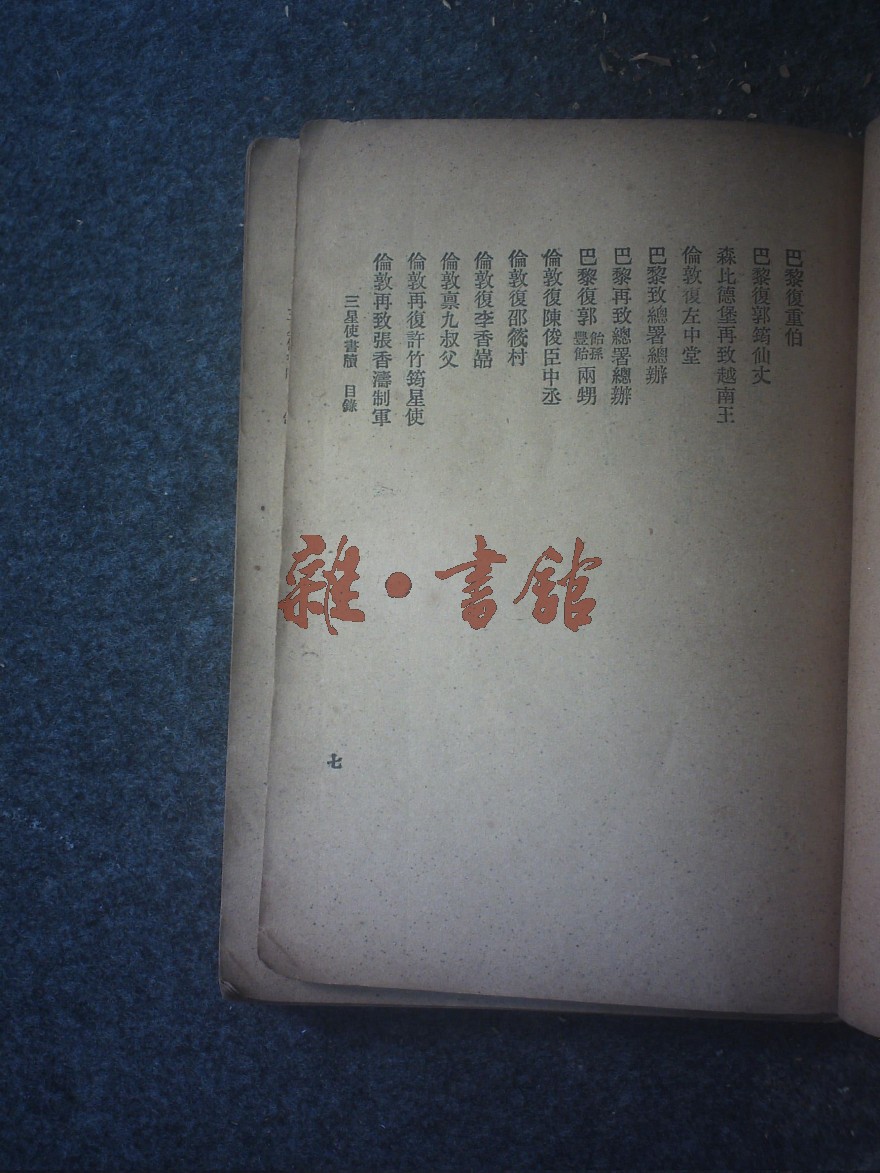 巴黎復重伯
巴黎復郭筠仙丈
森比德堡再致越南王
倫敦復左中堂
巴黎致總署總辦
巴黎再致總署總辦
巴黎復郭怡孫豐怡兩甥
倫敦復陳俊臣中丞
倫敦復邵筱村
倫敦復李香嵒
倫敦稟九叔父
倫敦再復許竹筠星使
倫敦再致張香濤制軍
三星使書牘 目錄
七
雜·書館